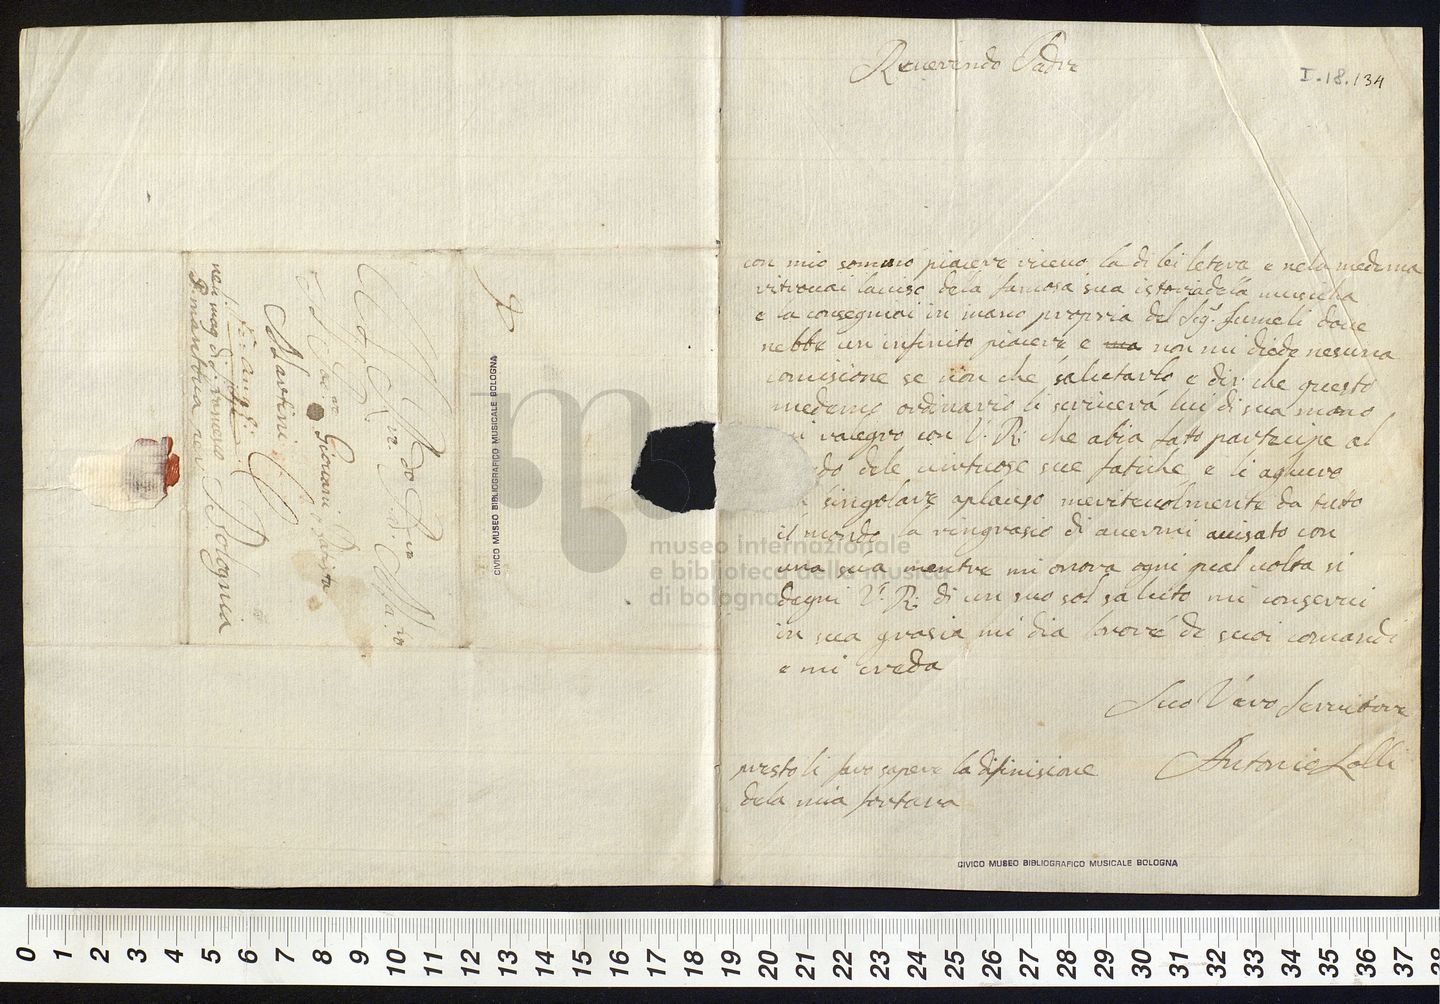 Reuerendo Padre
I.18.134
con mio sommo piacere riceuo la di lei letera e nela medema
ritrouai lauiso dela famosa sua istoria della musicha
e la consegniai in mano propria del Sig.r Jumeli doue
nebbe un infinito piacere e non mi diede nesuna
comisione se non che salutarlo e dir che questo
medemo ordinario li scriuerá lui di sua mano
mi ralegro con V. R. che abia fato partecipe al
dele uirtuose sue fatiche e li aguuro
singolare aplauso meriteuolmente da tuto
il mondo la ringrasio di auermi auisato con
una sua mentre mi onora ogni qual uolta si
degni V. R. di un suo sol saluto mi conserui
in sua grasia mi dia lonore de suoi comandi
e mi creda
Suo Vero Seruitore
Antonio Lolli
presto li faro sapere la difinisione
dela mia fortuna
CIVICO MUSEO BIBLIOGRAFICO MUSICALE BOLOGNA
Al
Giouani Batista
Martini
Bolognia
P mantoua per
CIVICO MUSEO BIBLIOGRAFICO MUSICALE BOLOGNA
museo internazionale
e biblioteca della musica
di bologna
0 1 2 3 4 5 6 7 8 9 10 11 12 13 14 15 16 17 18 19 20 21 22 23 24 25 26 27 28 29 30 31 32 33 34 35 36 37 38